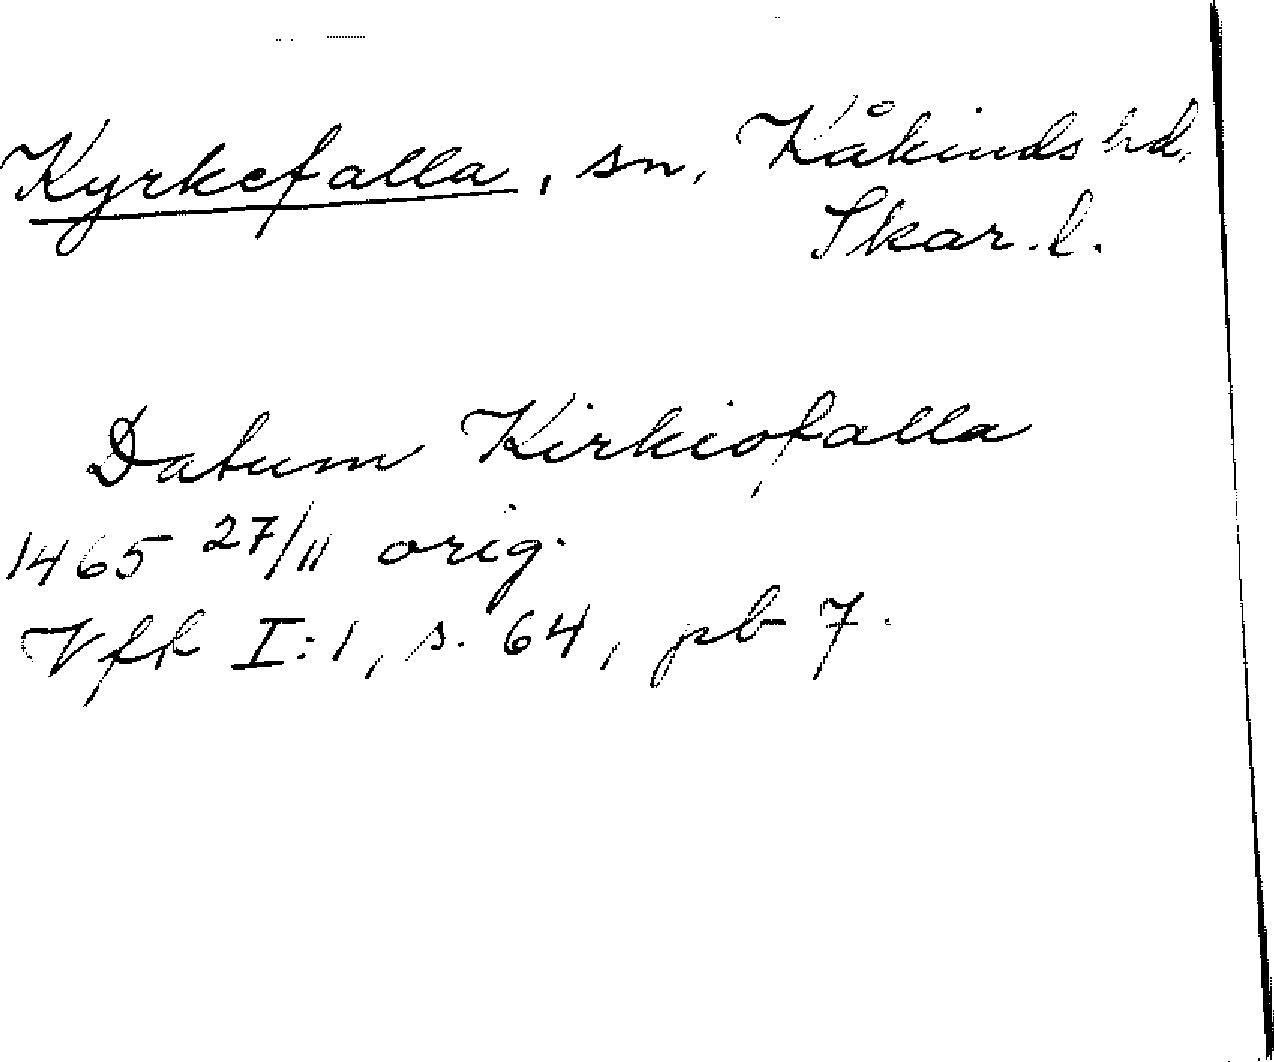 Kyrkefalla, sn, Kåkinds hd,
Skar. l.
Datum Kirkiofalla
1465 27/11 orig.
Vfk I:1, s. 64, pb 7.